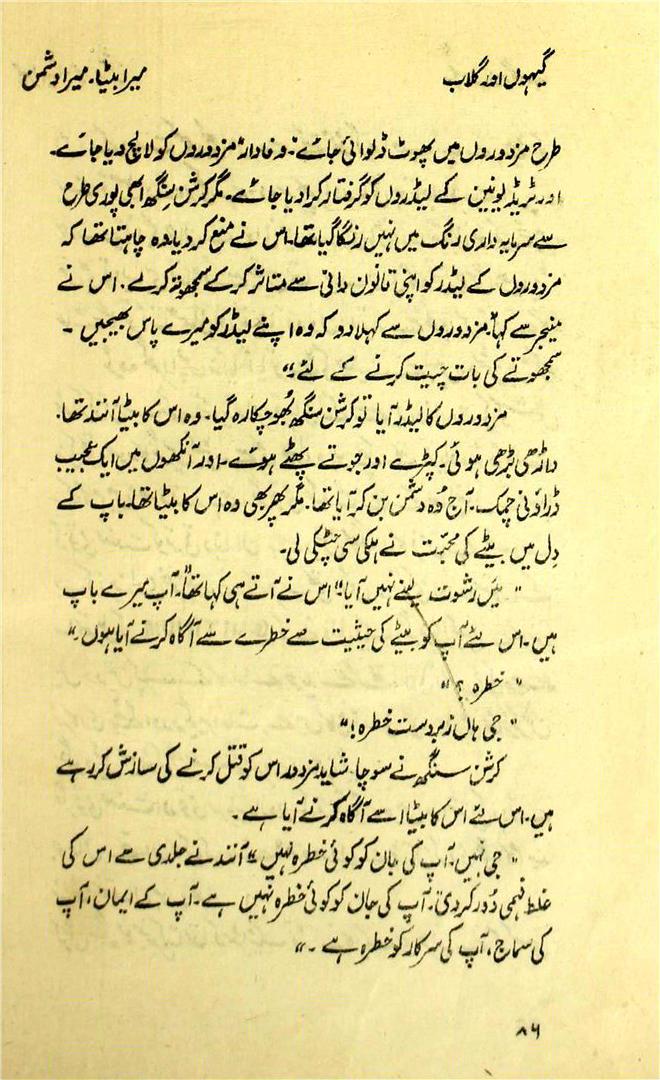 گیہوں اور گلاب
میرا بیٹا۔ میرا دشمن
طرح مزدوروں میں پھوٹ ڈلوائی جائے۔ وفادار مزدوروں کو لالچ دیا جائے۔
اور ٹریڈ یونین کے لیڈروں کو گرفتار کرا دیا جائے۔ مگر کرشن سنگھ ابھی پوری طرح
سے سرمایہ داری رنگ میں نہیں رنگا گیا تھا۔ اس نے منع کر دیا۔ وہ چاہتا تھا کہ
مزدوروں کے لیڈر کو اپنی قانون دانی سے متاثر کر کے سمجھوتہ کرلے۔ اس نے
مینجر سے کہا "مزدوروں سے کہلا دو کہ وہ اپنے لیڈر کو میرے پاس بھیجیں ۔
سمجھوتے کی بات چیت کرنے کے لئے۔"
مزدوروں کا لیڈر آیا تو کرشن سنگھ بھوچکا رہ گیا۔ وہ اس کا بیٹا آنند تھا۔
داڑھی بڑھی ہوئی۔ کپڑے اور جوتے پھٹے ہوئے۔ اور آنکھوں میں ایک عجیب
ڈراؤنی چمک۔ آج وہ دشمن بن کر آیا تھا۔ مگر پھر بھی وہ اس کا بیٹا تھا۔ باپ کے
دل میں بیٹے کی محبّت نے ہلکی سی چٹکی لی۔
"میں رشوت لینے نہیں آیا" اس نے آتے ہی کہا تھا "آپ میرے باپ
ہیں۔ اس لئے آپ کو بیٹے کی حیثیت سے خطرے سے آگاہ کرنے آیا ہوں۔"
"خطرہ؟"
"جی ہاں زبردست خطرہ!"
کرشن سنگھ نے سوچا۔ شاید مزدور اس کو قتل کرنے کی سازش کر رہے
ہیں۔ اس لئے اس کا بیٹا اسے آگاہ کرنے آیا ہے۔
"جی نہیں۔ آپ کی جان کو کوئی خطرہ نہیں" آنند نے جلدی سے اس کی
غلط فہمی دُور کر دی۔ آپ کی جان کو کوئی خطرہ نہیں ہے۔ آپ کے ایمان، آپ
کی سماج، آپ کی سرکار کو خطرہ ہے ۔"
۸۶